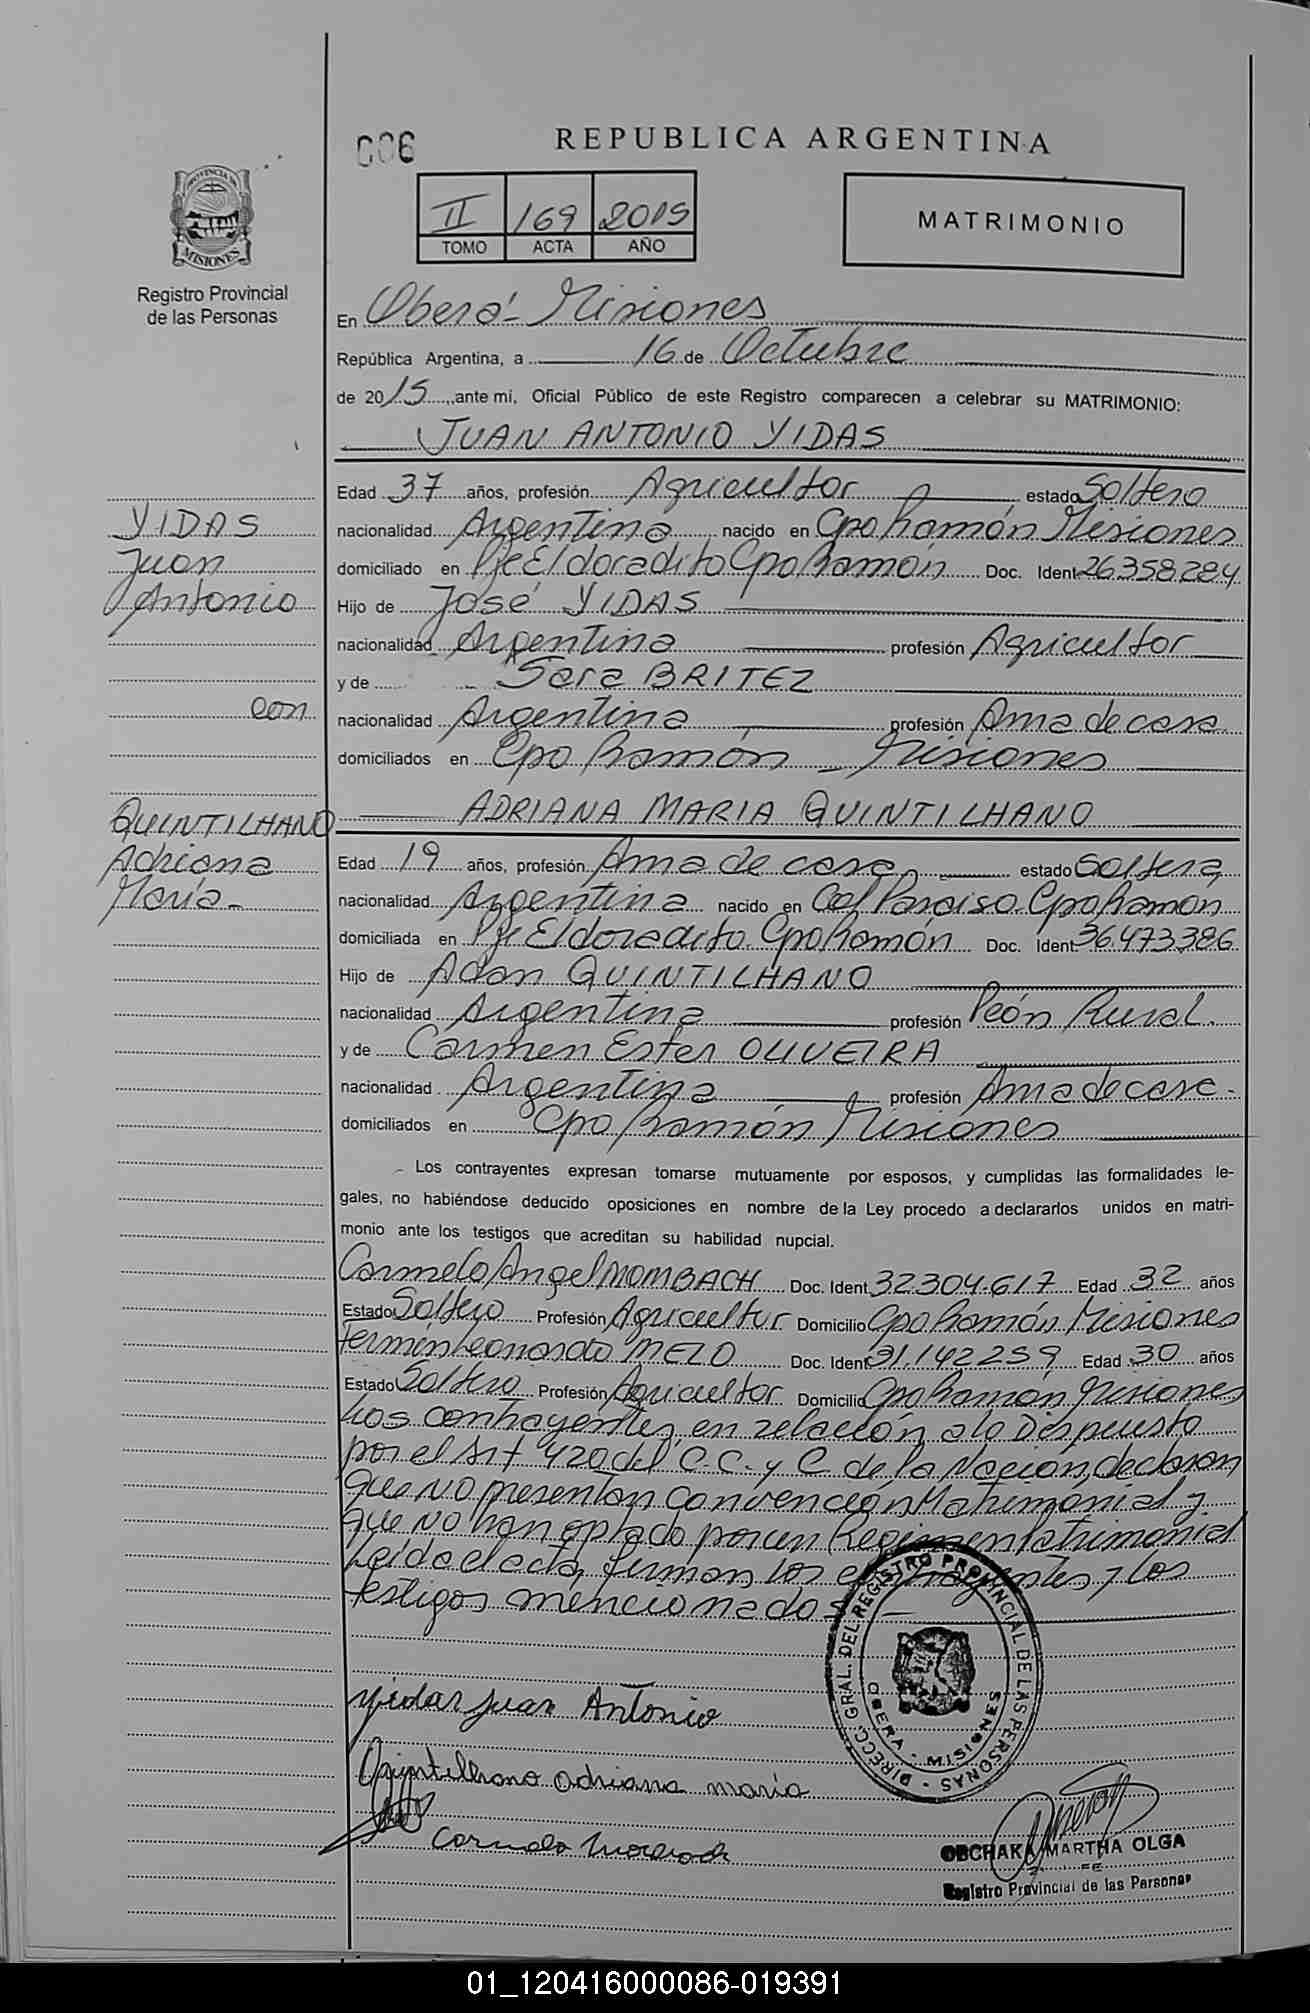 006
REPUBLICA ARGENTINA
II 169 2015
TOMO ACTA AÑO
MATRIMONIO
PROVINCIA DE
MISIONES
Registro Provincial
de las Personas
En Oberá - Misiones
República Argentina, a 16 de Octubre
de 2015 ante mi, Oficial Público de este Registro comparecen a celebrar su MATRIMONIO:
JUAN ANTONIO YIDAS
Edad 37 años, profesión Agricultor estado Soltero
YIDAS
nacionalidad Argentina nacido en Cpo Ramón Misiones
Juan
domiciliado en Pje Eldoradito Cpo Ramón Doc. Ident 26358284
Antonio
Hijo de José YIDAS
nacionalidad Argentina profesión Agricultor
y de Sara BRITEZ
con
nacionalidad Argentina profesión Ama de casa
domiciliados en Cpo Ramón - Misiones
QUINTILHANO
ADRIANA MARIA QUINTILHANO
Adriana
Edad 19 años, profesión Ama de casa estado Soltera
María -
nacionalidad Argentina nacido en Paraiso. Cpo Ramón
domiciliada en Pje Eldoradito Cpo Ramón Doc. Ident 36.473.386
Hijo de Adan QUINTILHANO
nacionalidad Argentina profesión Peón Rural.
y de Carmen Ester OLIVEIRA
nacionalidad Argentina profesión Ama de casa -
domiciliados en Cpo Ramón Misiones
Los contrayentes expresan tomarse mutuamente por esposos, y cumplidas las formalidades le-
gales, no habiéndose deducido oposiciones en nombre de la Ley procedo a declararlos unidos en matri-
monio ante los testigos que acreditan su habilidad nupcial.
Carmelo Angel MOMBACH Doc. Ident 32.304.617 Edad 32 años
Estado Soltero Profesión Agricultur Domicilio Cpo Ramón Misiones
Fermin Leonardo MELO Doc. Ident 31.142259 Edad 30 años
Estado Soltero Profesión Agricultor Domicilio Cpo Ramón Misiones
Los contrayentes, en relación a lo Dispuesto
por el Art 420 del C.C. y C. de la Nación, declaran
que NO presentan Convención Matrimonial y
que NO han optado por un Regimen Patrimonial
Leida el acta, firman los contrayentes y los
testigos mencionados
DIRECC. GRAL. DEL REGISTRO PROVINCIAL DE LAS PERSONAS
OBERA - MISIONES
Yidas Juan Antonio
Quintilhano adriana maría
Carmelo Mombach
OBCHAKA MARTHA OLGA
Registro Provincial de las Personas
01_120416000086-019391